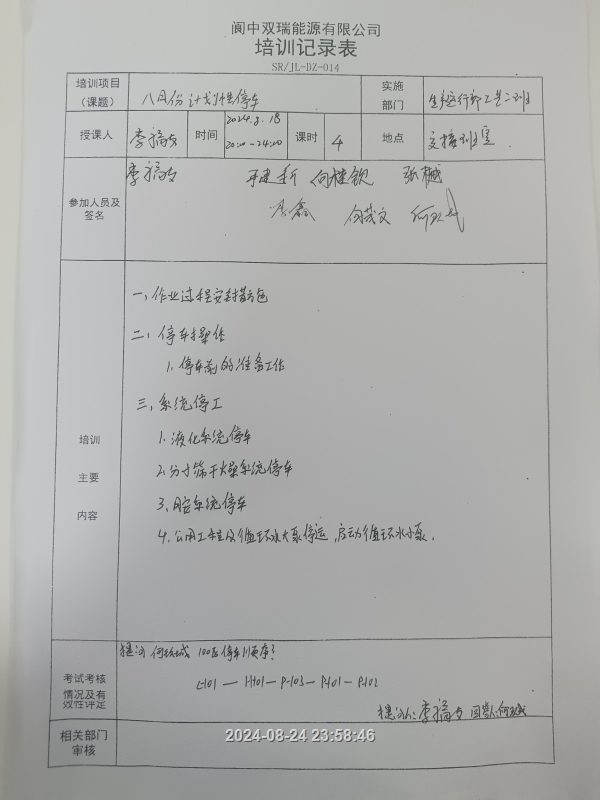 阆中双瑞能源有限公司
培训记录表
SR/JL-DZ-014
培训项目（课题） 八月份计划性停车 实施部门 生产运行部工艺二班
授课人 李福友 时间 2024.8.18 20:20-24:20 课时 4 地点 交接班室
参加人员及签名 李福友 何桂钦
何茂文
培训主要内容
一、作业过程安封措施
二、停车操作
1. 停车前的准备工作
三、系统停工
1. 液化系统停车
2. 分子筛干燥系统停车
3. 脱 系统停车
4. 公用工程及循环水大泵停运,启动循环水小泵.
考试考核情况及有效性评定
提问 何 100区停车顺序?
H101 — P-103 — P101 — P102
提问人: 李福友 回答人:何
相关部门审核
2024-08-24 23:58:46